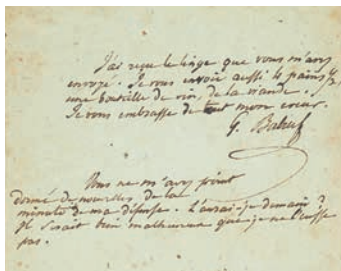 J'ai reçu le linge que vous m'avez
envoyé. Je vous envoie aussi 4 pains 1/2,
une bouteille de vin, de la viande.
Je vous embrasse de tout mon cœur.
G. Babeuf
Vous ne m'avez point
donné de nouvelles de la
minute de ma défense. L'aurai-je demain ?
Il serait bien malheureux que je ne l'eusse
pas.